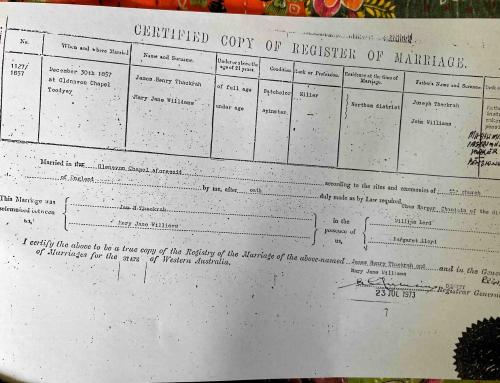 CERTIFIED COPY OF REGISTER OF MARRIAGE.
No.
When and where Married
Name and Surname.
Under or above the age of 21 years.
Condition
Rank or Profession.
Residence at the time of Marriage.
Father's Name and Surname.
1127/
1857
December 30th 1857
at Glenavon Chapel
Toodyay
James Henry Thackrah
Mary Jane Williams
of full age
under age
Batchelor
spinster
Miller
Northam district
Joseph Thackrah
John Williams
Married in the Glenavon Chapel aforesaid according to the rites and ceremonies of the church
of England by me, after oath duly made as by Law required
This Marriage was
solemnized between
us,
Jas H Thackrah
Mary Jane Williams
in the
presence of
us,
William Lord
Margaret Lloyd
I certify the above to be a true copy of the Registry of the Marriage of the above-named James Henry Thackrah and
Mary Jane Williams and in the General
of Marriages for the STATE of Western Australia.
Registrar General
23 JUL 1973